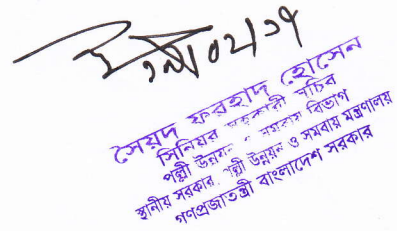 সৈয়দ ফরহাদ হোসেন
সিনিয়র সহকারী সচিব
পল্লী উন্নয়ন ও সমবায় বিভাগ
স্থানীয় সরকার, পল্লী উন্নয়ন ও সমবায় মন্ত্রণালয়
গণপ্রজাতন্ত্রী বাংলাদেশ সরকার